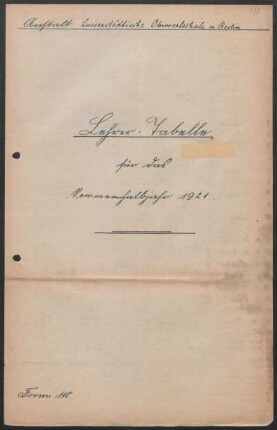 Anstalt: Luisenstädtische Oberrealschule in Berlin
Lehrer-Tabelle
für das
Sommerhalbjahr 1921.
Form 110.